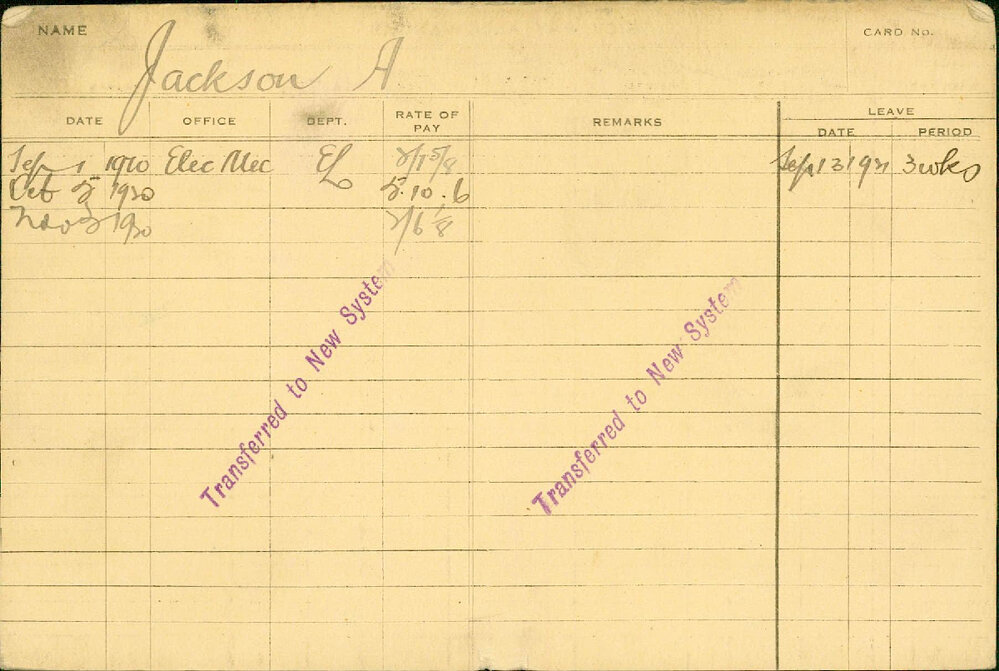 NAME Jackson A CARD No.
DATE OFFICE DEPT. RATE OF PAY REMARKS LEAVE
DATE PERIOD
Sep 1 1920 Elec Mec EL 2/1 5/8 Sep 13 1921 3 wks
Oct 5 1920 5.10.6
Nov 1920 2/6 1/8
Transferred to New System
Transferred to New System